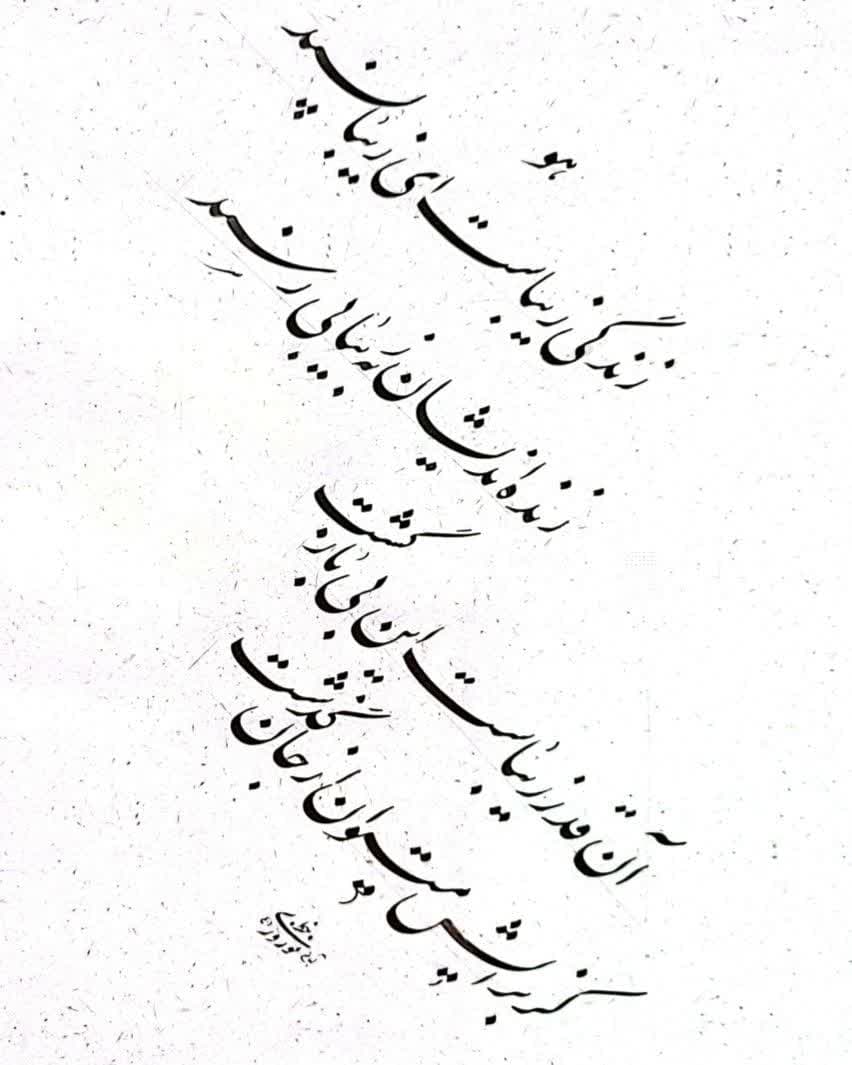 هو
زندگی زیباست ای زیباپسند
زنده اندیشان به زیبایی رسند
آن قدر زیباست این بی بازگشت
کز برایش میتوان از جان گذشت